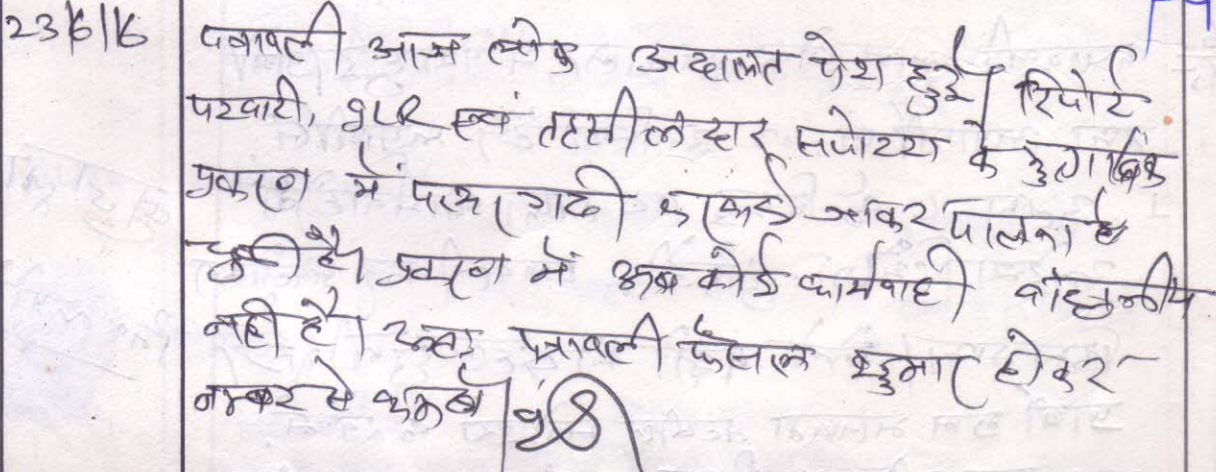 23/6/16 पत्रावली आज लोक अदालत पेश हुई। रिपोर्ट
पटवारी, ILR एवं तहसीलदार सपोटरा के मुताबिक
प्रकरण में पत्थरगढी की जाकर पालना हो
चुकी है। प्रकरण में अब कोई कार्यवाही वांछनीय
नहीं है। अतः पत्रावली फैसल शुमार होकर
नम्बर से कम हो।